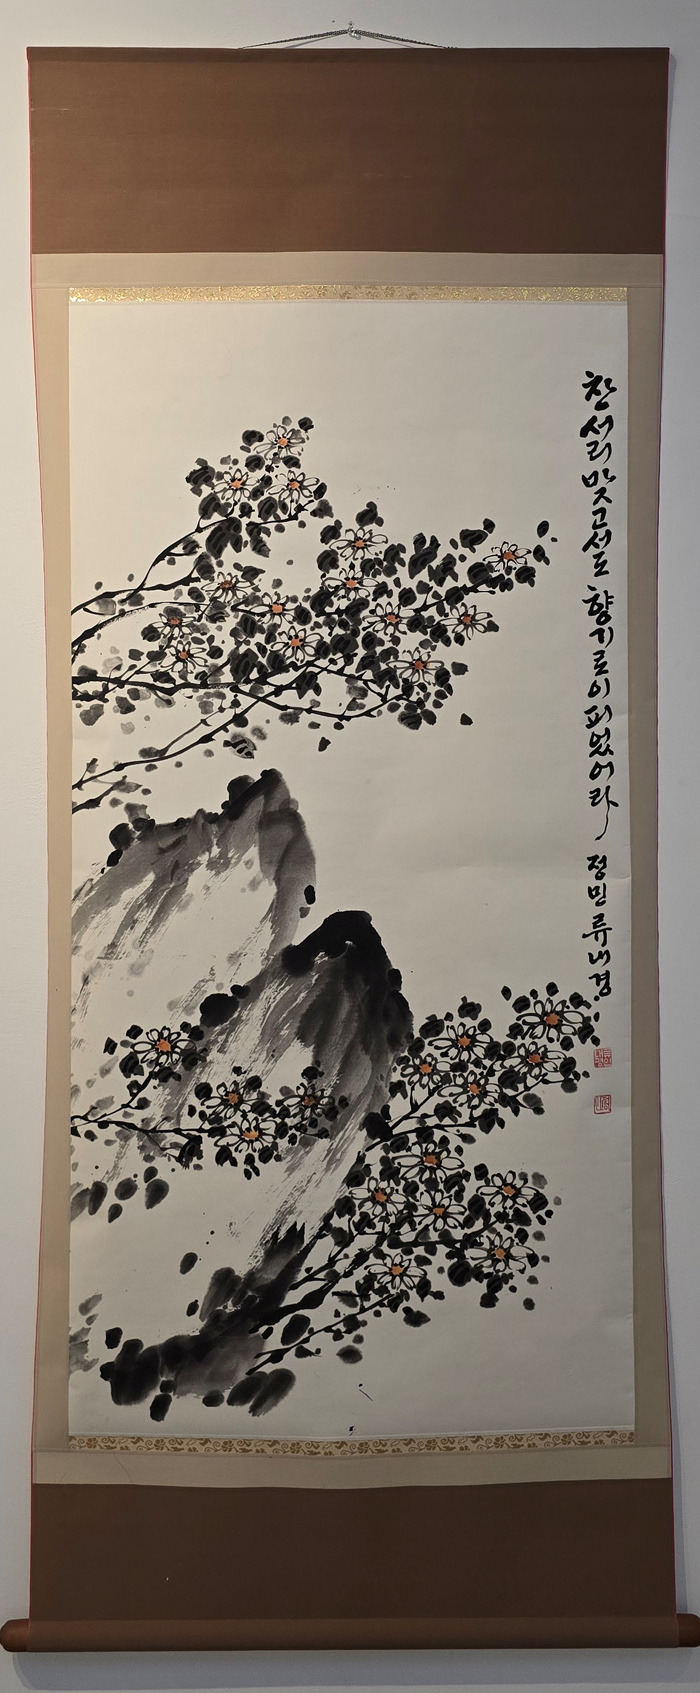 찬서리 맞고서도 향기로이 피었어라 정민 류내경